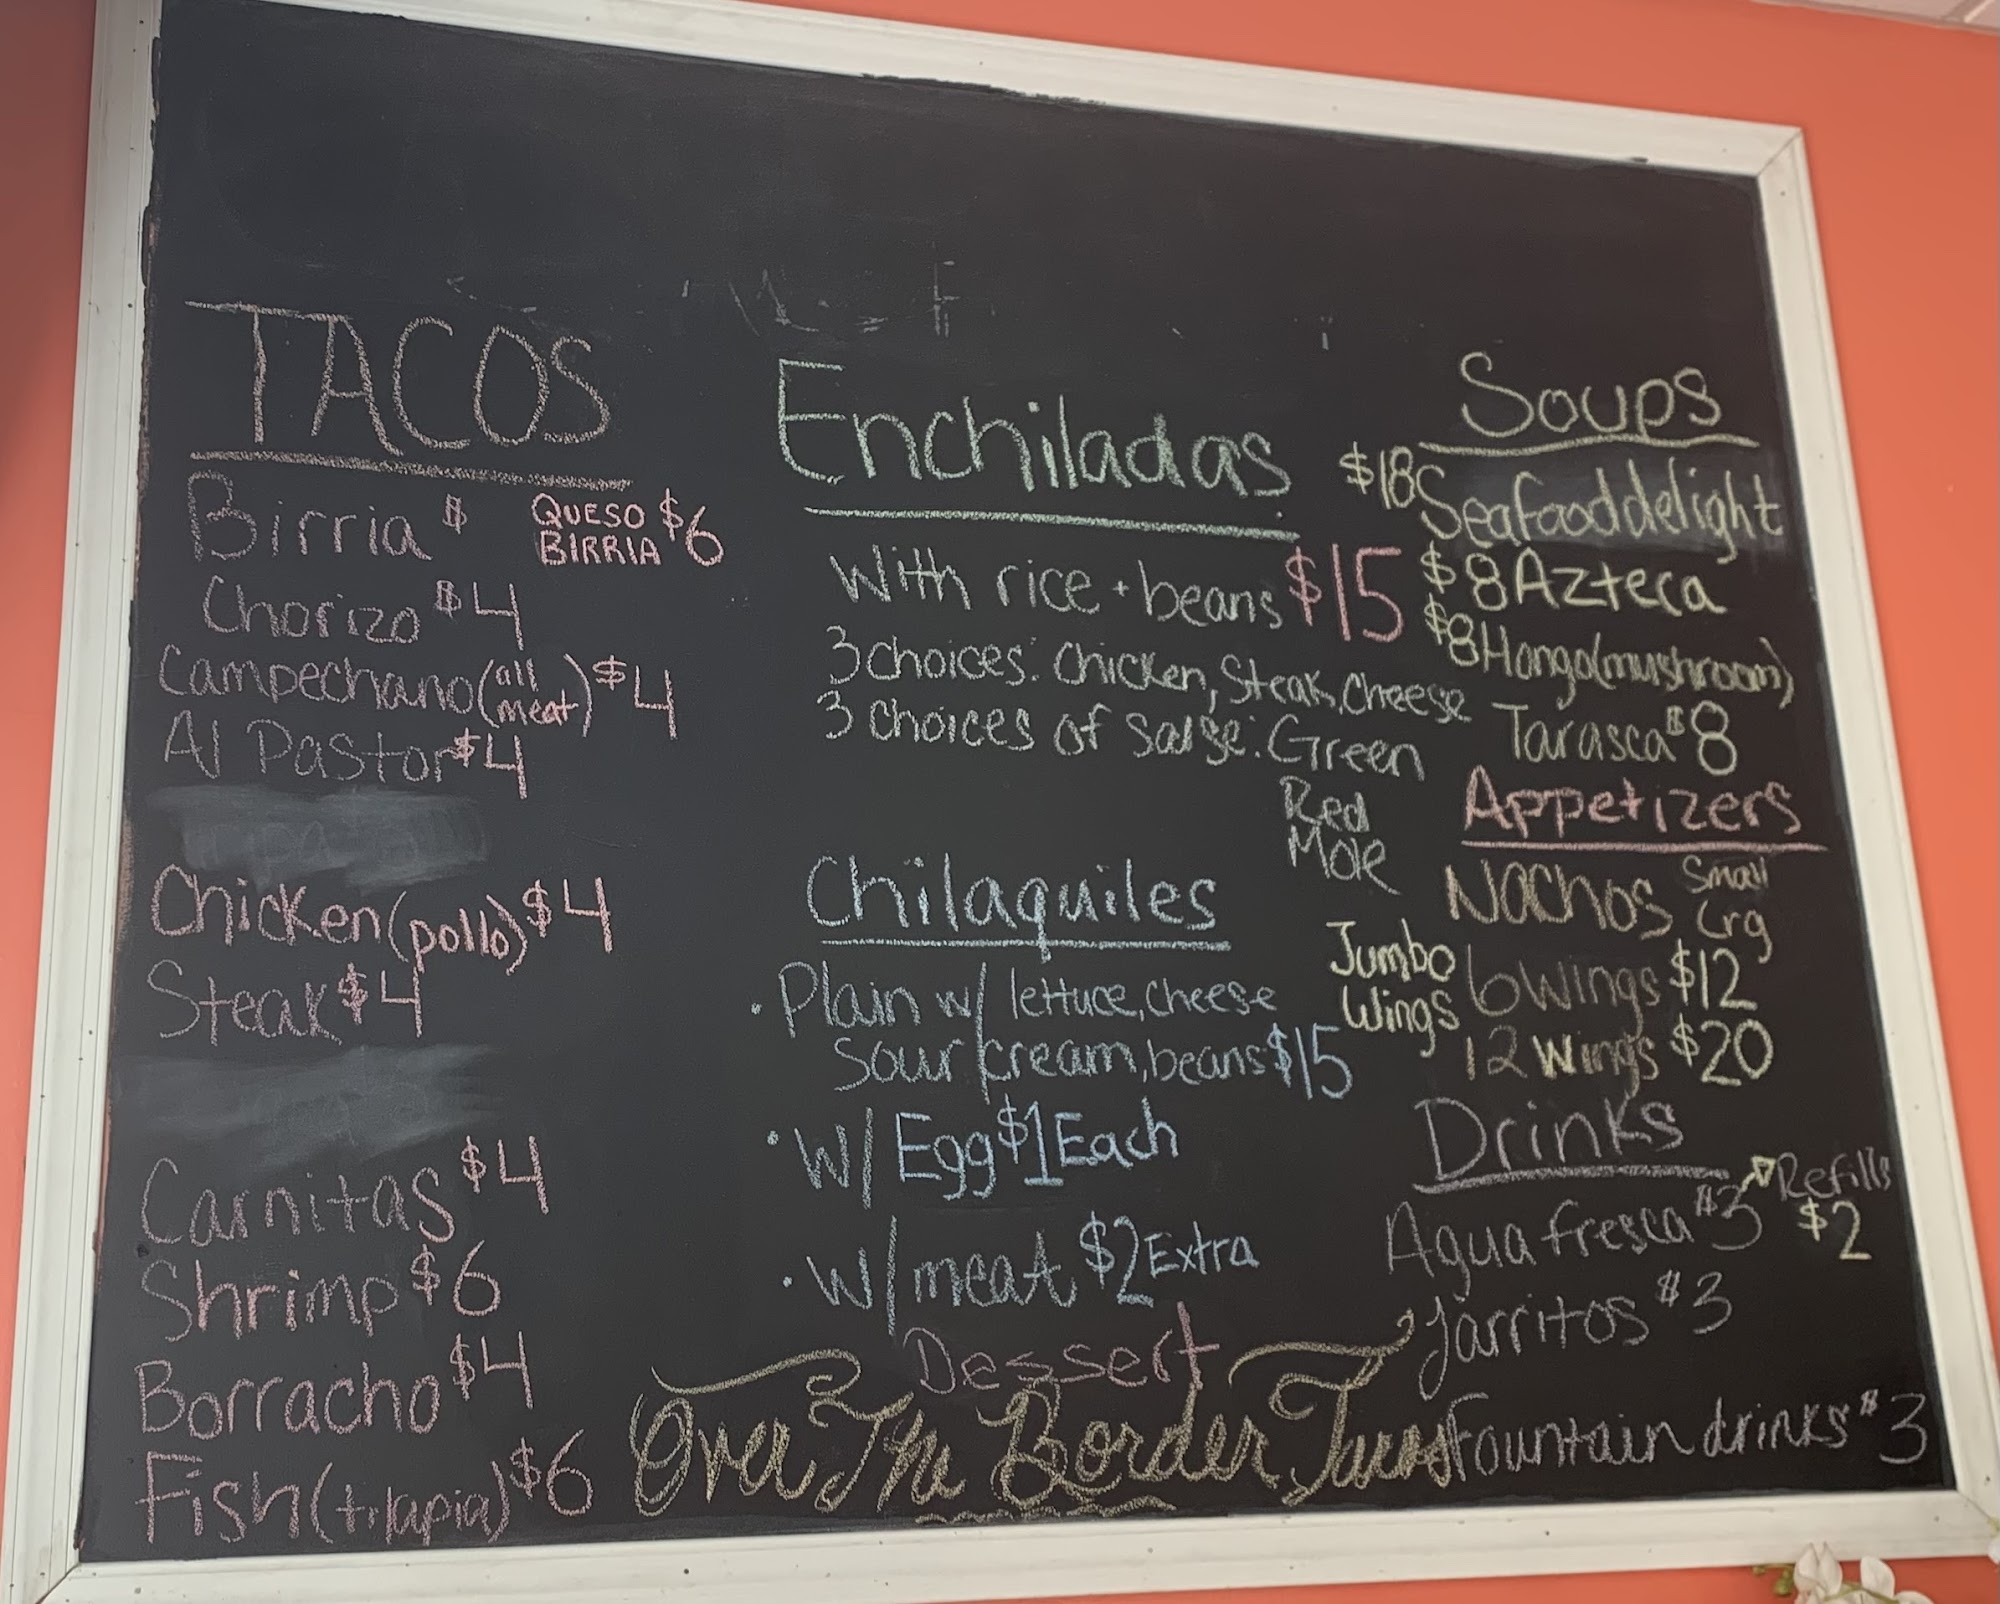 TACOS
Birria $
QUESO BIRRIA $6
Chorizo $4
Campechano (all meat) $4
Al Pastor $4
Chicken (pollo) $4
Steak $4
Carnitas $4
Shrimp $6
Borracho $4
Fish (tilapia) $6
Enchiladas
With rice + beans $15
3 choices: Chicken, Steak, Cheese
3 choices of Salse: Green
Red
Mole
Chilaquiles
• Plain w/ lettuce, cheese
sour cream, beans $15
• W/ Egg $1 Each
• W/ meat $2 Extra
Dessert
Over The Border Tacos
Soups
$18 Seafood delight
$8 Azteca
$8 Hongo (mushroom)
Tarasca $8
Appetizers
Nachos Small
Lrg
Jumbo Wings
6 Wings $12
12 Wings $20
Drinks
Agua fresca $3
Refills $2
Jarritos $3
Fountain drinks $3